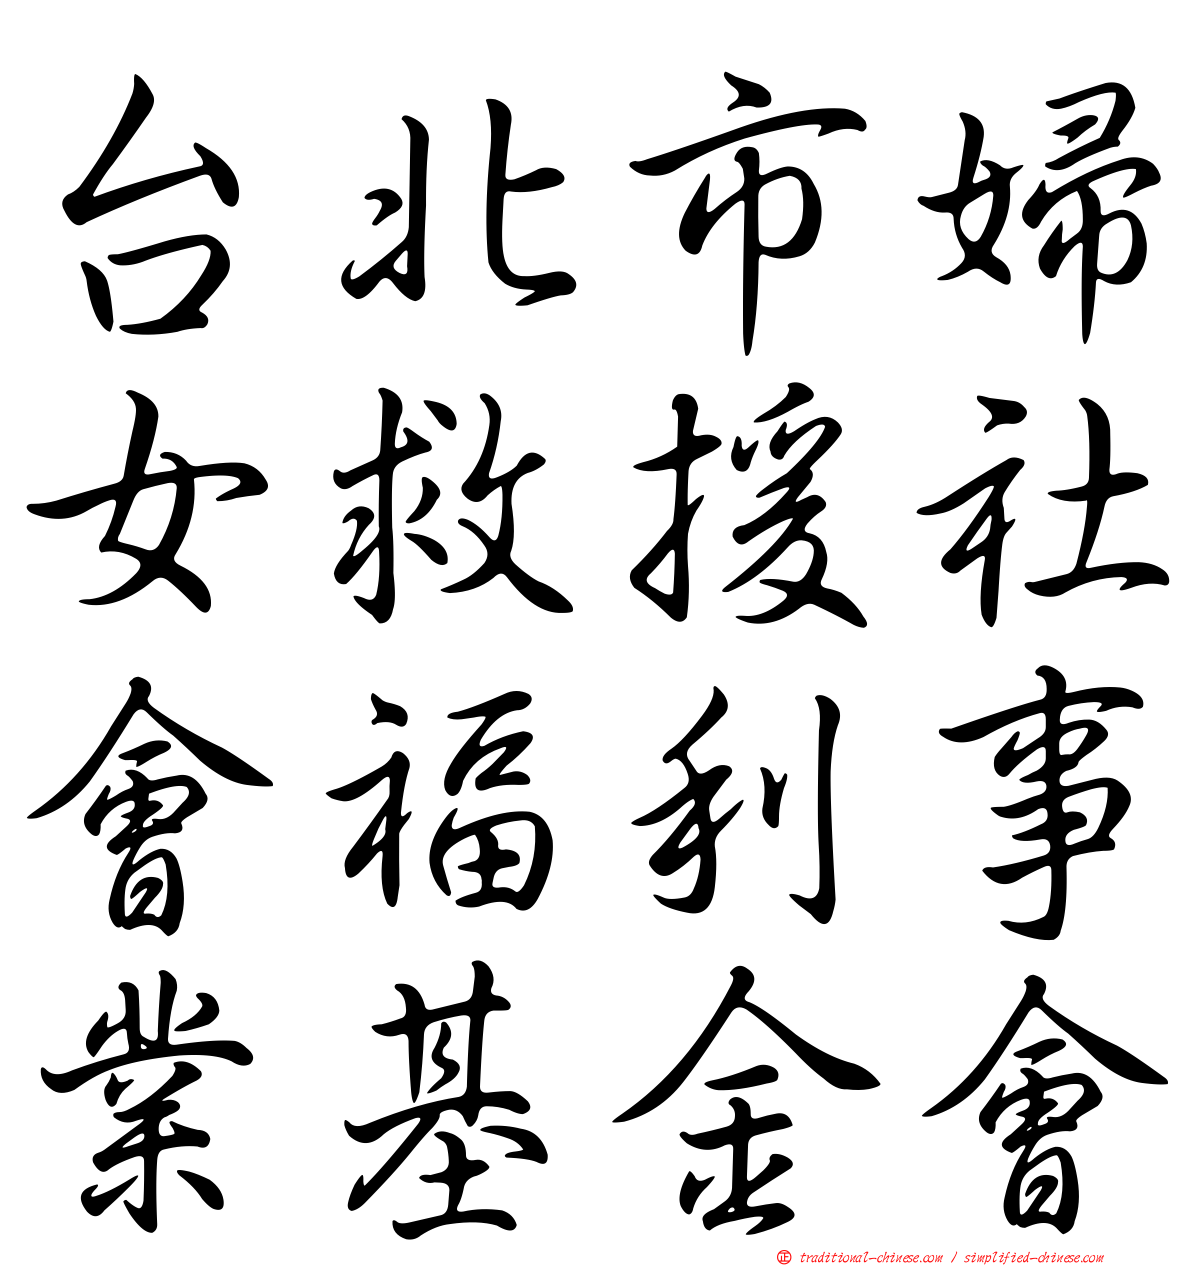 台北市婦
女救援社
會福利事
業基金會
正 traditional-chinese.com / simplified-chinese.com